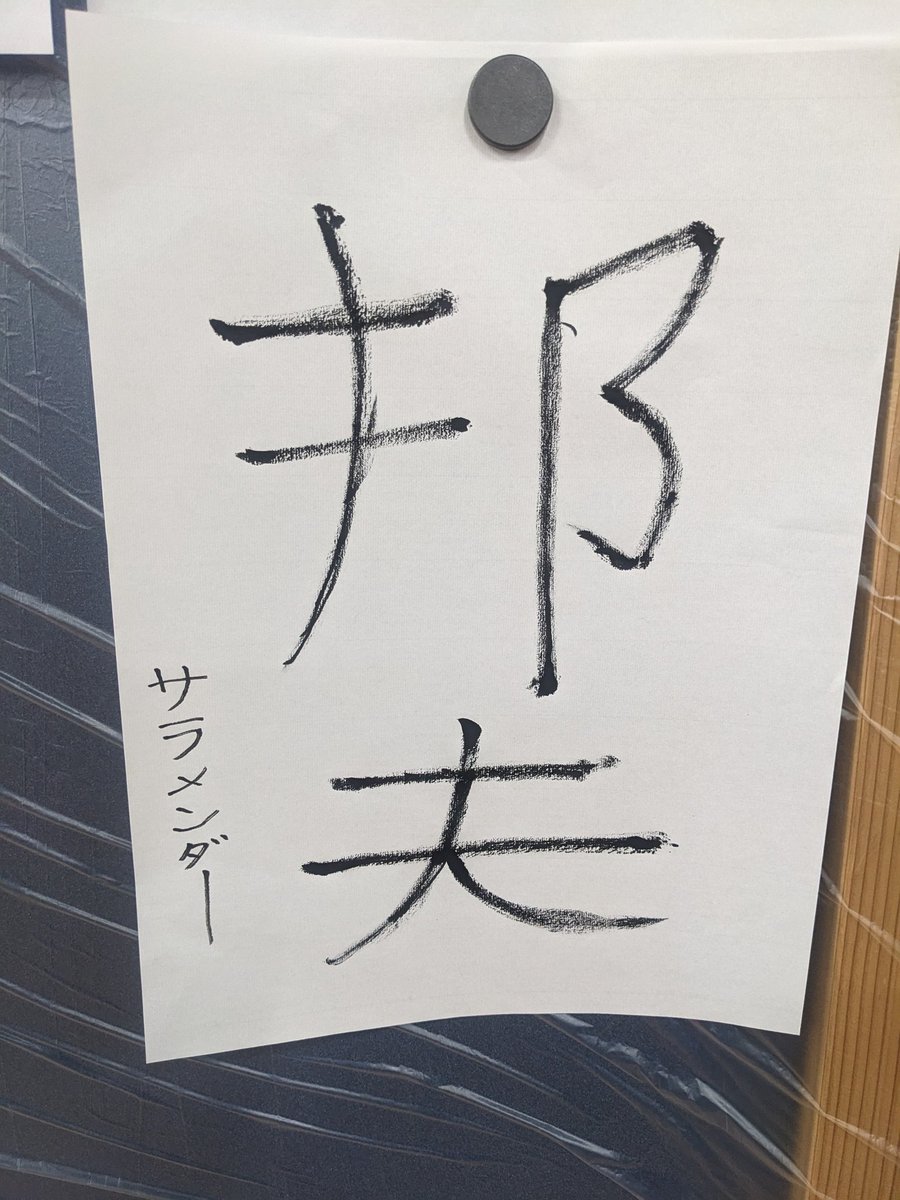 邦夫
サラメンダー